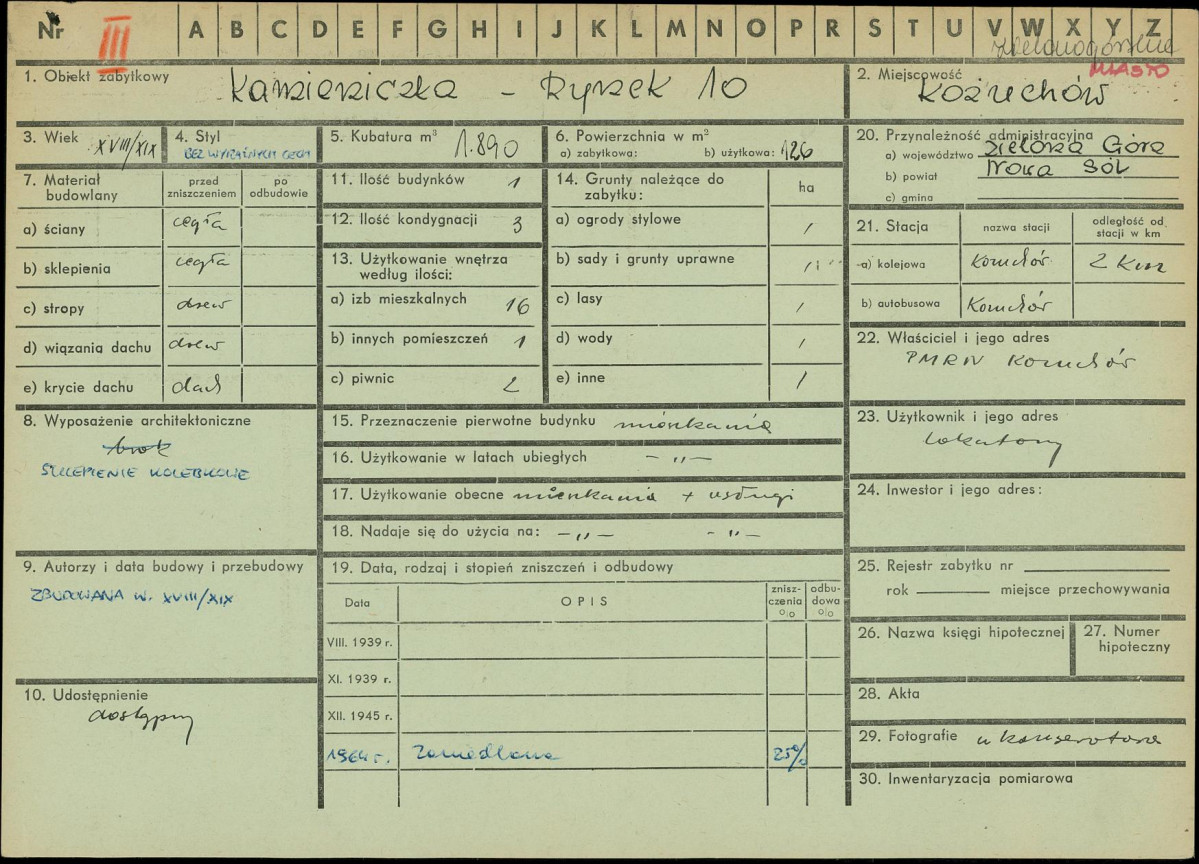 Nr III A B C D E F G H I J K L M N O P R S T U V W X Y Z
zielonogórskie
MIASTO
1. Obiekt zabytkowy Kamieniczka – Rynek 10
2. Miejscowość Kożuchów
3. Wiek XVIII/XIX
4. Styl BEZ WYRAŹNYCH CECH
5. Kubatura m³ 1.890
6. Powierzchnia w m²
a) zabytkowa: b) użytkowa: 126
7. Materiał budowlany
przed zniszczeniem
po odbudowie
a) ściany cegła
b) sklepienia cegła
c) stropy drew
d) wiązania dachu drew
e) krycie dachu dach
8. Wyposażenie architektoniczne
brak
SKLEPIENIE KOLEBKOWE
9. Autorzy i data budowy i przebudowy
ZBUDOWANA W. XVIII/XIX
10. Udostępnienie
dostępny
11. Ilość budynków 1
12. Ilość kondygnacji 3
13. Użytkowanie wnętrza
według ilości:
a) izb mieszkalnych 16
b) innych pomieszczeń 1
c) piwnic 2
14. Grunty należące do
zabytku: ha
a) ogrody stylowe /
b) sady i grunty uprawne /
c) lasy /
d) wody /
e) inne /
15. Przeznaczenie pierwotne budynku mieszkania
16. Użytkowanie w latach ubiegłych – „ –
17. Użytkowanie obecne mieszkania + usługi
18. Nadaje się do użycia na: – „ – – „ –
19. Data, rodzaj i stopień zniszczeń i odbudowy
Data OPIS znisz-
czenia
o|o odbu-
dowa
o|o
VIII. 1939 r.
XI. 1939 r.
XII. 1945 r.
1964 r. Zaniedbana 25%
20. Przynależność administracyjna
a) województwo Zielona Góra
b) powiat Nowa Sól
c) gmina
21. Stacja nazwa stacji odległość od
stacji w km
a) kolejowa Kożuchów 2 km
b) autobusowa Kożuchów
22. Właściciel i jego adres
PMRN Kożuchów
23. Użytkownik i jego adres
lokatorzy
24. Inwestor i jego adres:
25. Rejestr zabytku nr
rok miejsce przechowywania
26. Nazwa księgi hipotecznej
27. Numer
hipoteczny
28. Akta
29. Fotografie u konserwatora
30. Inwentaryzacja pomiarowa